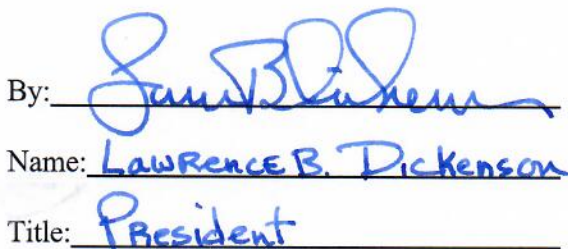 By:
Name: LAWRENCE B. DICKENSON
Title: PResident